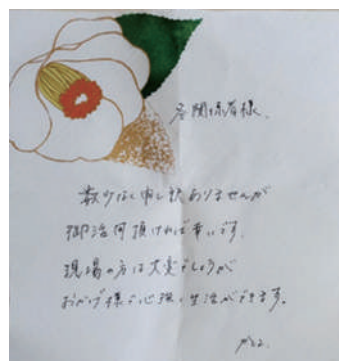 各関係者様、
数少なく申し訳ありませんが
御活何頂ければ幸いです。
現場の方は大変でしょうが
おかげ様で心強く生活ができます。